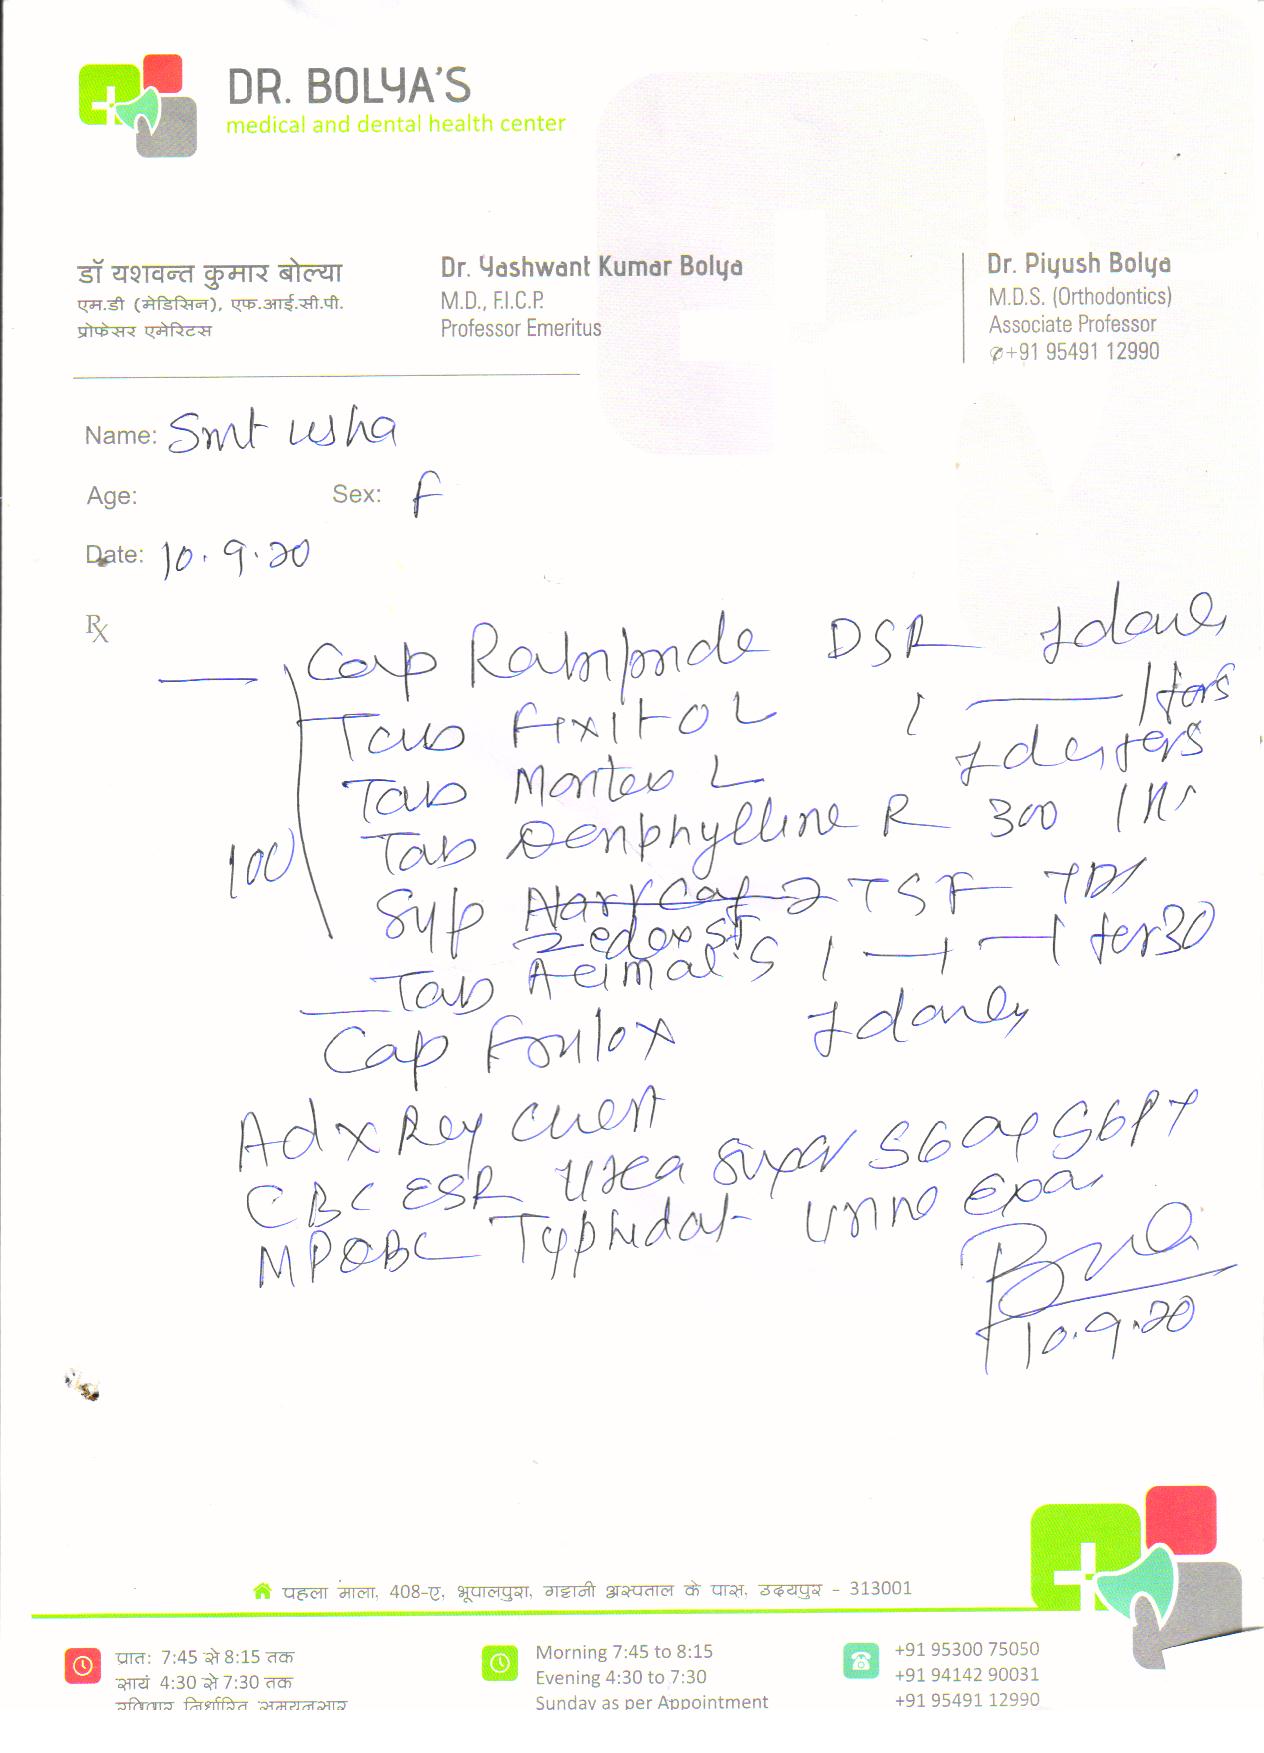 DR. BOLYA'S
medical and dental health center
डॉ यशवन्त कुमार बोल्या
एम.डी (मेडिसिन), एफ.आई.सी.पी.
प्रोफेसर एमेरिटस
Dr. Yashwant Kumar Bolya
M.D., F.I.C.P.
Professor Emeritus
Dr. Piyush Bolya
M.D.S. (Orthodontics)
Associate Professor
+91 95491 12990
Name: Smt Usha
Age: Sex: F
Date: 10.9.20
Rx
Cap DSR 1 daily
Tab 1 1 for 5
Tab L 1 daily for 5
100 Tab R 300 1
Syp 2 TSF TDS
Tab 1 1 1 for 30
Cap 1 daily
Ad X Ray Chest
CBC ESR Urea Sugar SGOT SGPT
Typhidot Urine Exa
10.9.20
पहला माला, 408-ए, भूपालपुरा, गट्टानी अस्पताल के पास, उदयपुर - 313001
प्रात: 7:45 से 8:15 तक
सायं 4:30 से 7:30 तक
रविवार निर्धारित समयानुसार
Morning 7:45 to 8:15
Evening 4:30 to 7:30
Sunday as per Appointment
+91 95300 75050
+91 94142 90031
+91 95491 12990